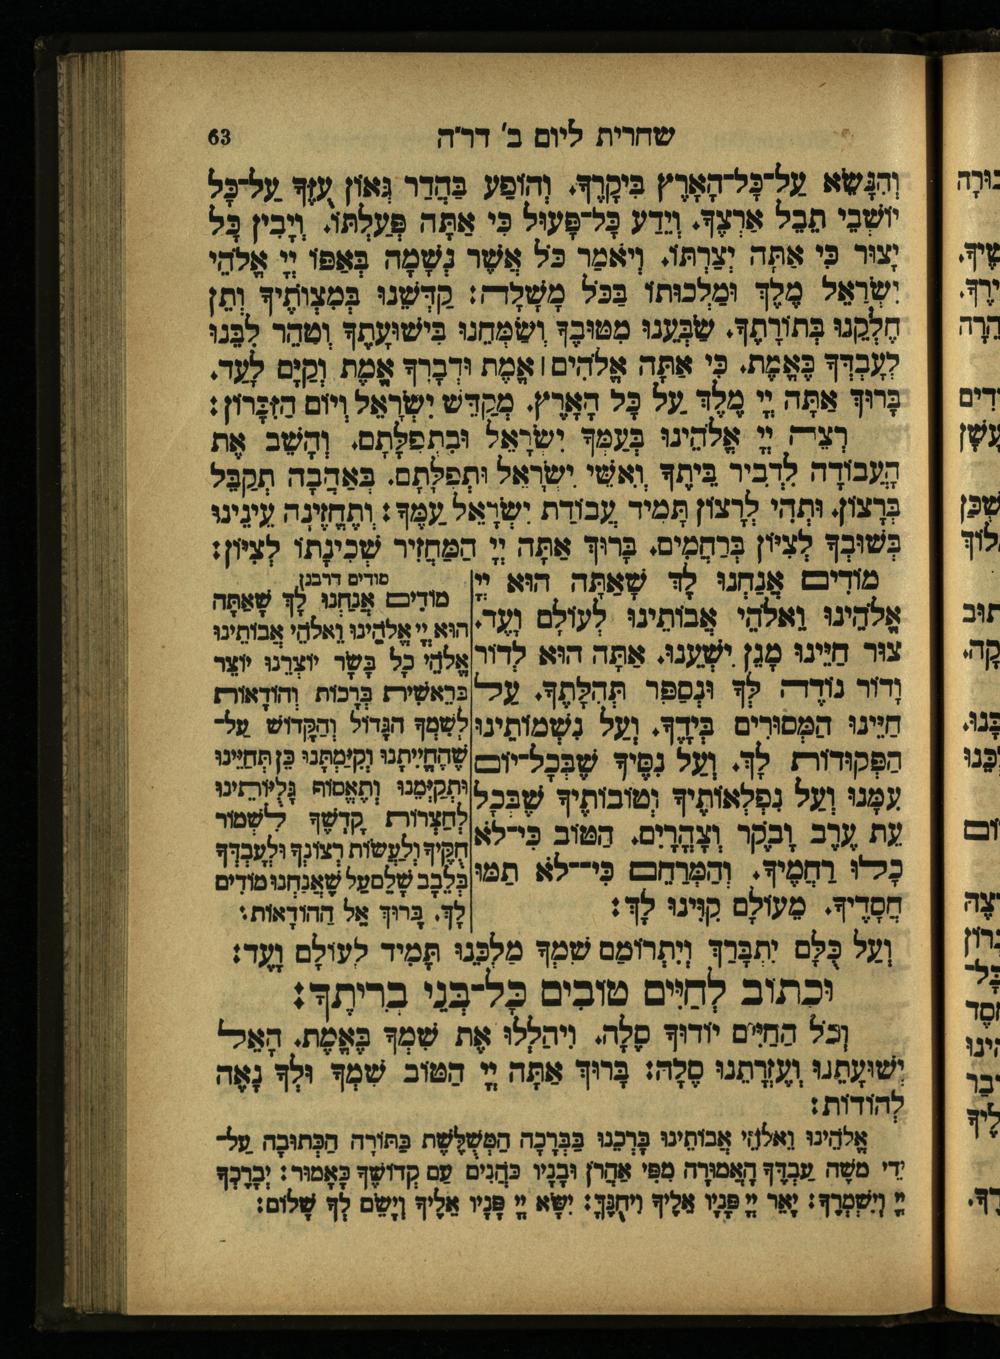 שחרית ליום ב' דר״ה
63
וְהִנָּשֵׂא עַל־כָּל־הָאָרֶץ בִּיקָרֶךָ. וְהוֹפַע בַּהֲדַר גְּאוֹן עֻזֶּךָ עַל־כָּל
יוֹשְׁבֵי תֵבֵל אַרְצֶךָ. וְיֵדַע כָּל־פָּעוּל כִּי אַתָּה פְּעַלְתּוֹ. וְיָבִין כָּל
יָצוּר כִּי אַתָּה יְצַרְתּוֹ. וְיֹאמַר כֹּל אֲשֶׁר נְשָׁמָה בְּאַפּוֹ יְיָ אֱלֹהֵי
יִשְׂרָאֵל מֶלֶךְ וּמַלְכוּתוֹ בַּכֹּל מָשָׁלָה: קַדְּשֵׁנוּ בְּמִצְוֹתֶיךָ וְתֵן
חֶלְקֵנוּ בְּתוֹרָתֶךָ. שַׂבְּעֵנוּ מִטּוּבֶךָ וְשַׂמְּחֵנוּ בִּישׁוּעָתֶךָ וְטַהֵר לִבֵּנוּ
לְעָבְדְּךָ בֶּאֱמֶת. כִּי אַתָּה אֱלֹהִים ׀ אֱמֶת וּדְבָרְךָ אֱמֶת וְקַיָּם לָעַד.
בָּרוּךְ אַתָּה יְיָ מֶלֶךְ עַל כָּל הָאָרֶץ. מְקַדֵּשׁ יִשְׂרָאֵל וְיוֹם הַזִּכָּרוֹן:
רְצֵה יְיָ אֱלֹהֵינוּ בְּעַמְּךָ יִשְׂרָאֵל וּבִתְפִלָּתָם. וְהָשֵׁב אֶת
הָעֲבוֹדָה לִדְבִיר בֵּיתֶךָ וְאִשֵּׁי יִשְׂרָאֵל וּתְפִלָּתָם. בְּאַהֲבָה תְקַבֵּל
בְּרָצוֹן. וּתְהִי לְרָצוֹן תָּמִיד עֲבוֹדַת יִשְׂרָאֵל עַמֶּךָ: וְתֶחֱזֶינָה עֵינֵינוּ
בְּשׁוּבְךָ לְצִיּוֹן בְּרַחֲמִים. בָּרוּךְ אַתָּה יְיָ הַמַּחֲזִיר שְׁכִינָתוֹ לְצִיּוֹן:
מוֹדִים אֲנַחְנוּ לָךְ שָׁאַתָּה הוּא יְיָ
אֱלֹהֵינוּ וֵאלֹהֵי אֲבוֹתֵינוּ לְעוֹלָם וָעֶד.
צוּר חַיֵּינוּ מָגֵן יִשְׁעֵנוּ. אַתָּה הוּא לְדוֹר
וָדוֹר נוֹדֶה לְּךָ וּנְסַפֵּר תְּהִלָּתֶךָ. עַל
חַיֵּינוּ הַמְּסוּרִים בְּיָדֶךָ. וְעַל נִשְׁמוֹתֵינוּ
הַפְּקוּדוֹת לָךְ. וְעַל נִסֶּיךָ שֶׁבְּכָל־יוֹם
עִמָּנוּ וְעַל נִפְלְאוֹתֶיךָ וְטוֹבוֹתֶיךָ שֶׁבְּכָל
עֵת עֶרֶב וָבֹקֶר וְצָהֳרָיִם. הַטּוֹב כִּי־לֹא
כָלוּ רַחֲמֶיךָ. וְהַמְרַחֵם כִּי־לֹא תַמּוּ
חֲסָדֶיךָ. מֵעוֹלָם קִוִּינוּ לָךְ:
מודים דרבנן
מוֹדִים אֲנַחְנוּ לָךְ שָׁאַתָּה
הוּא יְיָ אֱלֹהֵינוּ וֵאלֹהֵי אֲבוֹתֵינוּ
אֱלֹהֵי כָל בָּשָׂר יוֹצְרֵנוּ יוֹצֵר
בְּרֵאשִׁית בְּרָכוֹת וְהוֹדָאוֹת
לְשִׁמְךָ הַגָּדוֹל וְהַקָּדוֹשׁ עַל־
שֶׁהֶחֱיִיתָנוּ וְקִיַּמְתָּנוּ כֵּן תְּחַיֵּינוּ
וּתְקַיְּמֵנוּ וְתֶאֱסוֹף גָּלֻיּוֹתֵינוּ
לְחַצְרוֹת קָדְשֶׁךָ לִשְׁמוֹר
חֻקֶּיךָ וְלַעֲשׂוֹת רְצוֹנֶךָ וּלְעָבְדְּךָ
בְּלֵבָב שָׁלֵם עַל שֶׁאֲנַחְנוּ מוֹדִים
לָךְ. בָּרוּךְ אֵל הַהוֹדָאוֹת:
וְעַל כֻּלָּם יִתְבָּרַךְ וְיִתְרוֹמַם שִׁמְךָ מַלְכֵּנוּ תָּמִיד לְעוֹלָם וָעֶד:
וּכְתוֹב לְחַיִּים טוֹבִים כָּל־בְּנֵי בְרִיתֶךָ:
וְכֹל הַחַיִּים יוֹדוּךָ סֶּלָה. וִיהַלְלוּ אֶת שִׁמְךָ בֶּאֱמֶת. הָאֵל
יְשׁוּעָתֵנוּ וְעֶזְרָתֵנוּ סֶלָה: בָּרוּךְ אַתָּה יְיָ הַטּוֹב שִׁמְךָ וּלְךָ נָאֶה
לְהוֹדוֹת:
אֱלֹהֵינוּ וֵאלֹהֵי אֲבוֹתֵינוּ בָּרְכֵנוּ בַּבְּרָכָה הַמְשֻׁלֶּשֶׁת בַּתּוֹרָה הַכְּתוּבָה עַל־
יְדֵי מֹשֶׁה עַבְדֶּךָ הָאֲמוּרָה מִפִּי אַהֲרֹן וּבָנָיו כֹּהֲנִים עַם קְדוֹשֶׁךָ כָּאָמוּר: יְבָרֶכְךָ
יְיָ וְיִשְׁמְרֶךָ: יָאֵר יְיָ פָּנָיו אֵלֶיךָ וִיחֻנֶּךָּ: יִשָּׂא יְיָ פָּנָיו אֵלֶיךָ וְיָשֵׂם לְךָ שָׁלוֹם: